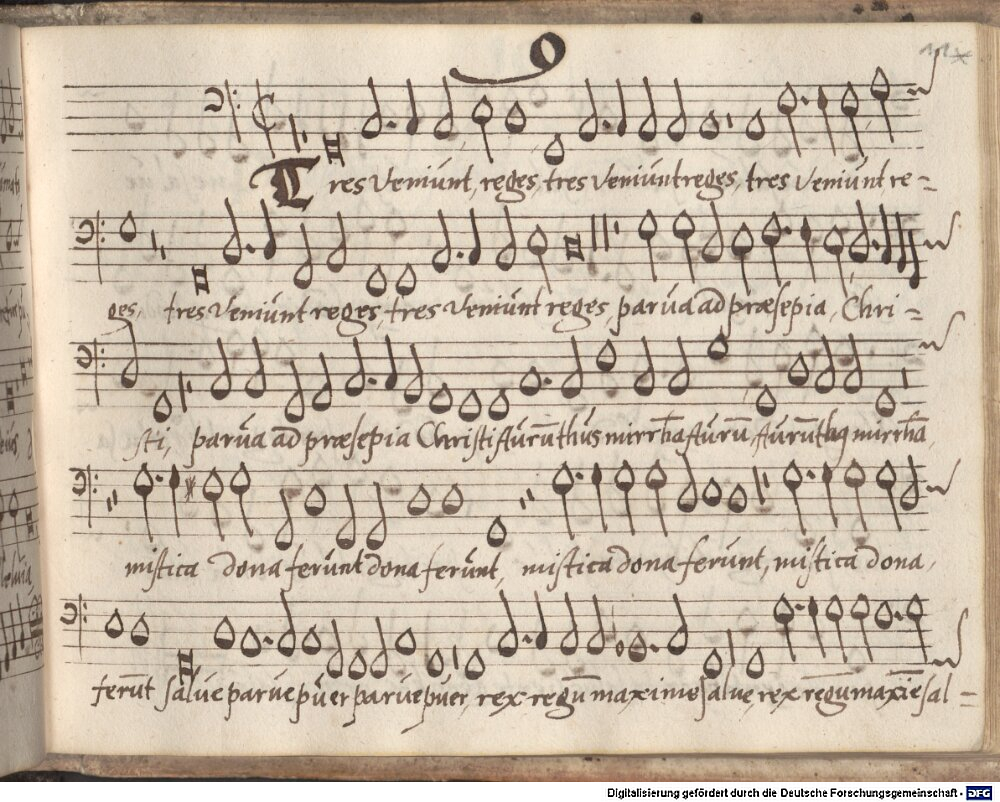 Tres veniunt, reges, tres veniunt reges, tres veniunt re=
ges, tres veniunt reges, tres veniunt reges parva ad præsepia, Chri=
sti, parva ad præsepia Christi ferūt
mistica dona ferunt dona ferunt, mistica dona ferunt, mistica dona,
ferūt salve parve puer parve puer, rex regū maxime salve, rex regū maxīe sal=
Digitalisierung gefördert durch die Deutsche Forschungsgemeinschaft - DFG